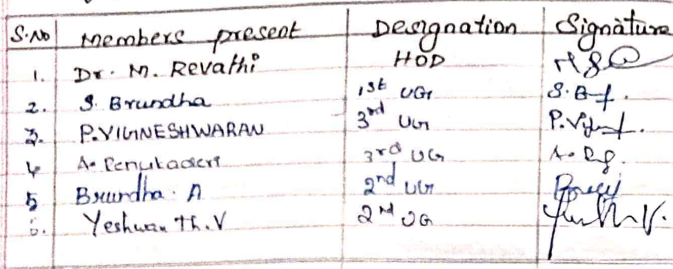 S.No Members present Designation Signature
1. Dr. M. Revathi HOD
2. S. Brundha 1st UG S.B
3. P.VIGNESHWARAN 3rd UG
4 A. Renukadevi 3rd UG
5 Brundha. A 2nd UG
6. Yeshwanth.V 2nd UG